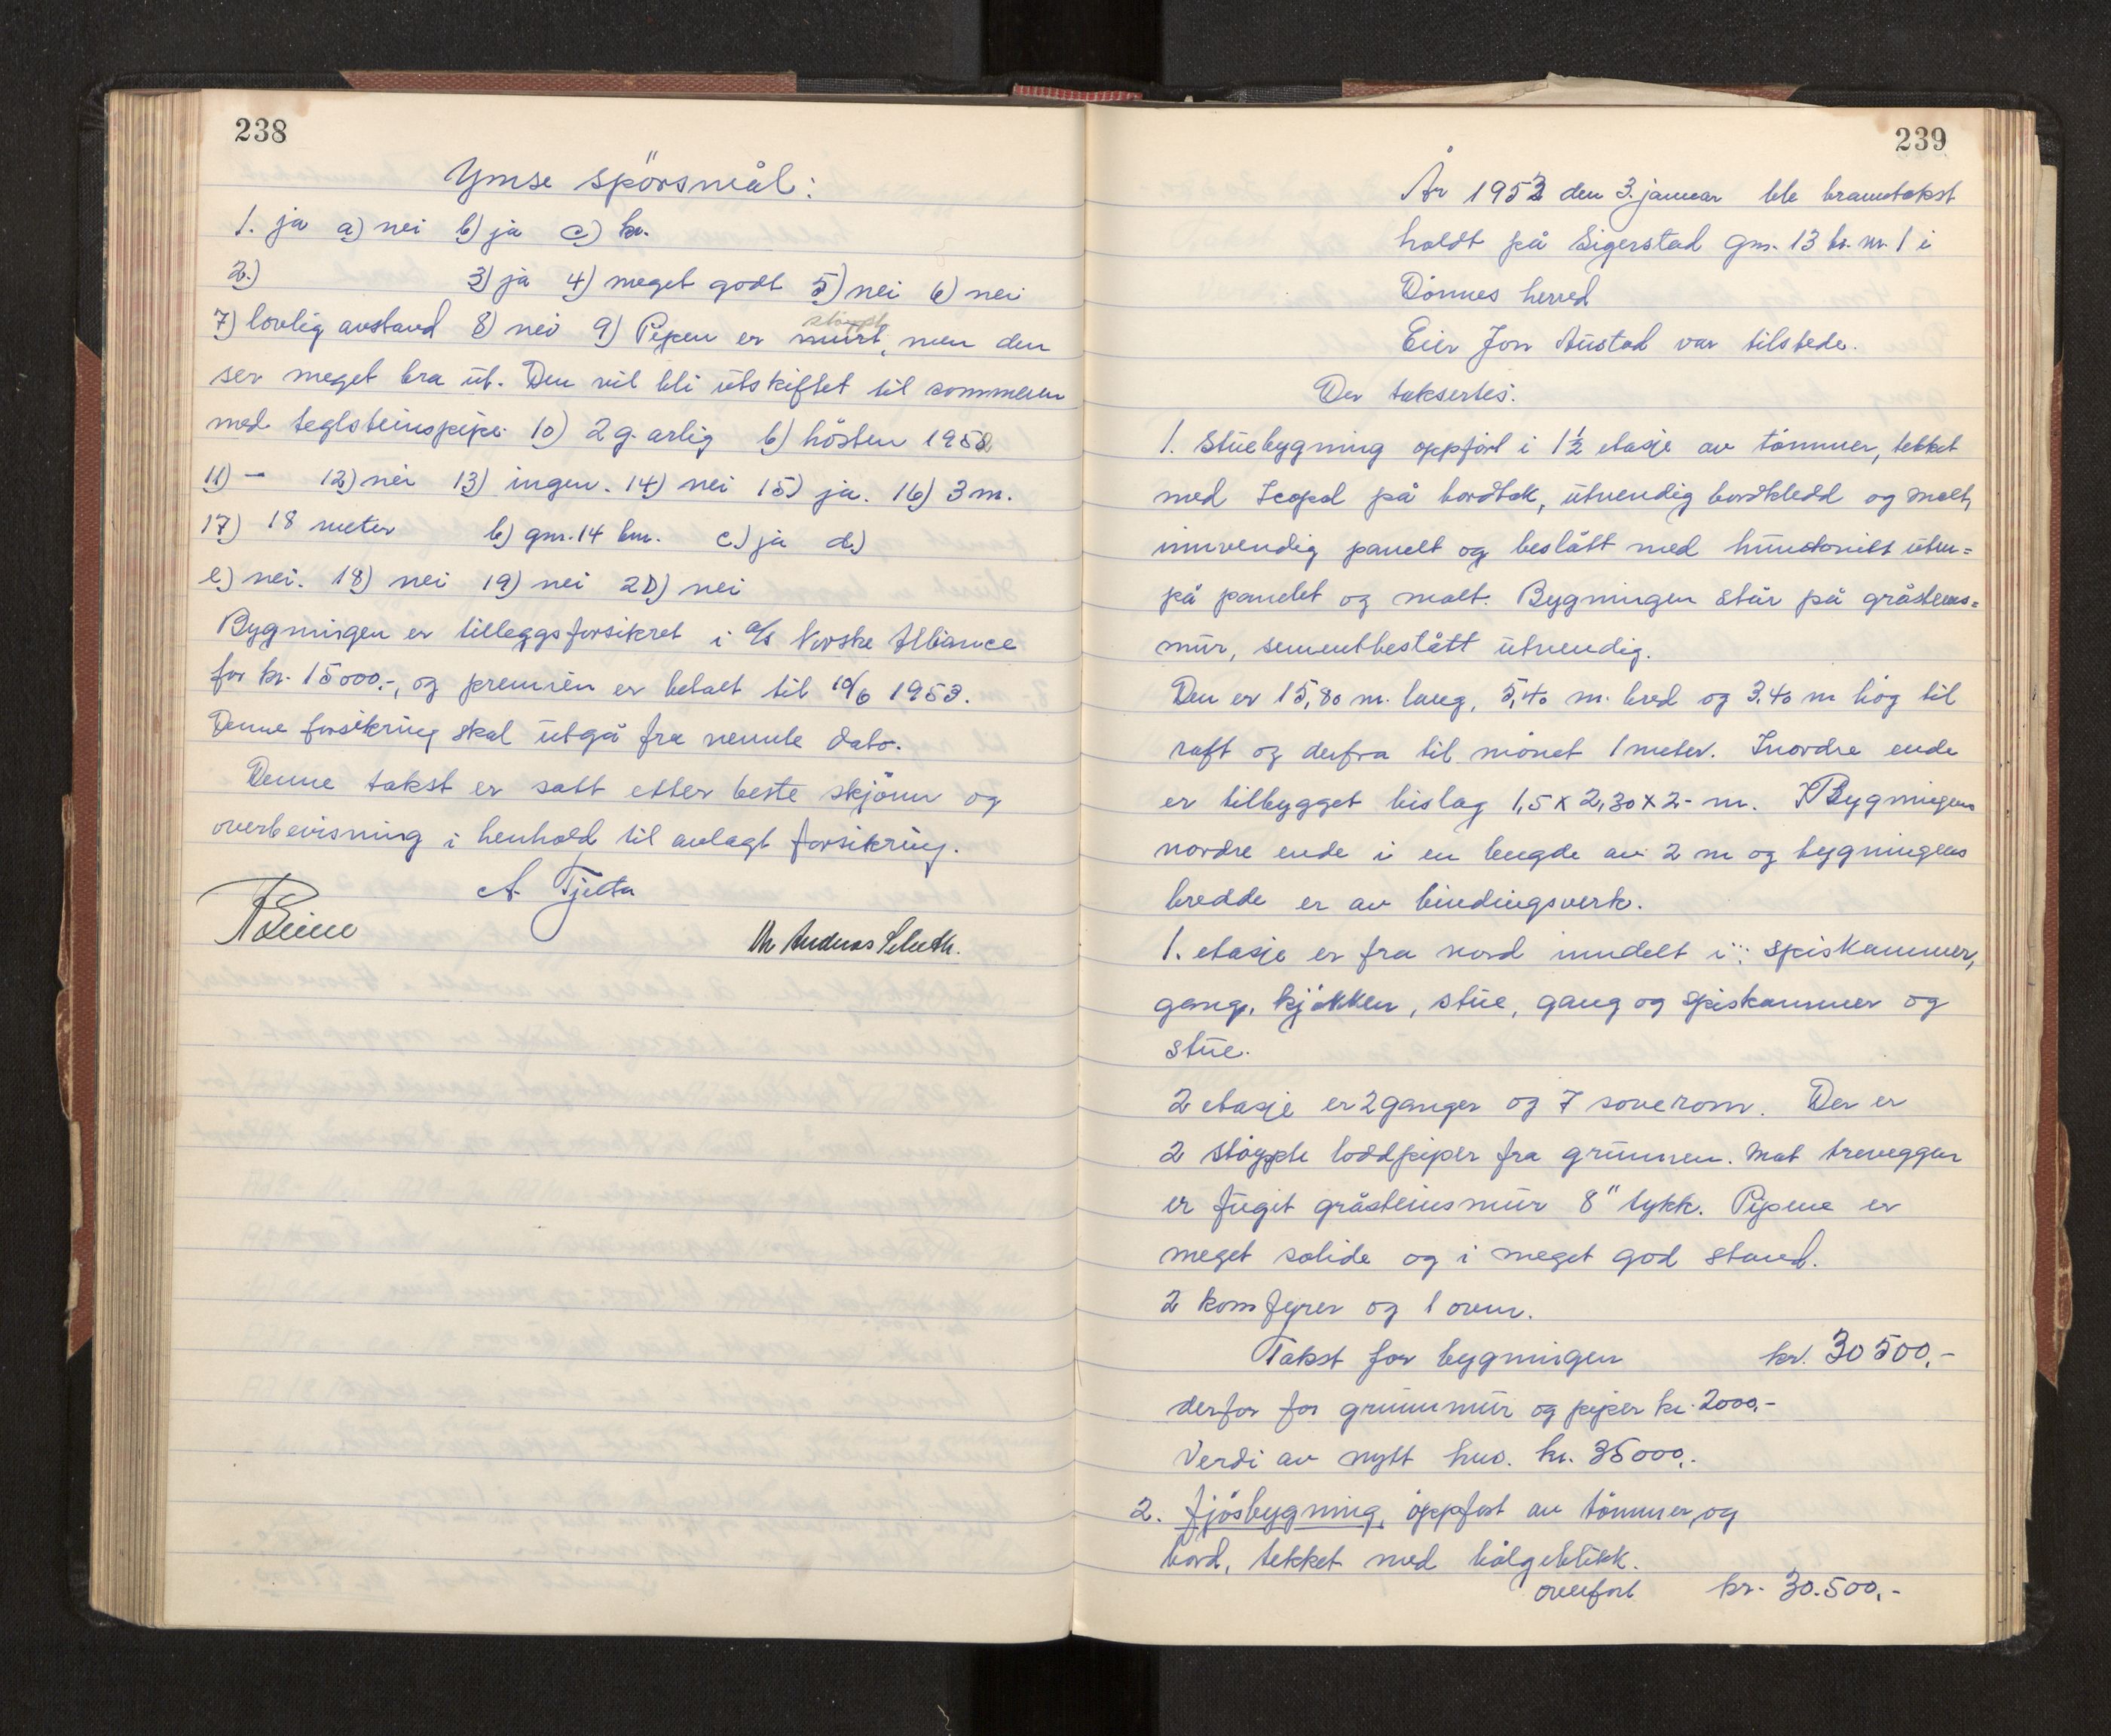 238
Ymse spörsmål:
1. ja a) nei b) ja c) kr.
2.) 3) ja 4) meget godt 5) nei 6) nei
støypt
7) lovlig avstand 8) nei 9) Pipen er murt, men den
ser meget bra ut. Den vil bli utskiftet til sommeren
med teglsteinspipe 10) 2 g. arlig b) hösten 1952
11) - 12) nei 13) ingen. 14) nei 15) ja. 16) 3 m.
17) 18 meter b) gnr. 14 bnr. c.) ja d.)
e) nei. 18) nei 19) nei 20) nei
Bygningen er tilleggsforsikret i a/s Norske Alliance
for kr. 15000.-, og premien er betalt til 10/6 1953.
Denne forsikring skal utgå fra nemnte dato.
Denne takst er satt etter beste skjönn og
overbevisning i henhold til avlagt forsikring.
A. Tjetta
Andreas
239
År 1953 den 3. januar ble branntakst
holdt på Sigerstad gnr. 13 br. nr. 1 i
Dönnes herred
Eier Jon Austad var tilstede.
Der taksertes:
1. Stuebygning oppfört i 1½ etasje av tömmer, tekket
med Icopal på bordtak, utvendig bordkledd og malt,
innvendig panelt og beslått med huntonitt uten=
på panelet og malt. Bygningen står på gråsteins=
mur, sementbeslått utvendig.
Den er 15,80 m. lang, 5,40 m. bred og 3,40 m hög til
raft og derfra til mönet 1 meter. I nordre ende
er tilbygget bislag 1,5 x 2,30 x 2- m. Bygningens
nordre ende i en lengde av 2 m og bygningens
bredde er av bindingsverk.
1. etasje er fra nord inndelt i: spiskammer,
gang, kjökken, stue, gang og spiskammer og
stue.
2 etasje er 2 ganger og 7 soverom. Der er
2 stöypte loddpiper fra grunnen. Mot treveggen
er fuget gråsteinsmur 8" tykk. Pipene er
meget solide og i meget god stand.
2 komfyrer og 1 ovn.
Takst for bygningen kr. 30 500,-
derfor for grunnmur og piper kr. 2000,-
Verdi av nytt hus. kr. 35000,-
2. fjösbygning, oppfört av tömmer og
bord, tekket med bölgeblikk.
overfört kr. 30.500,-